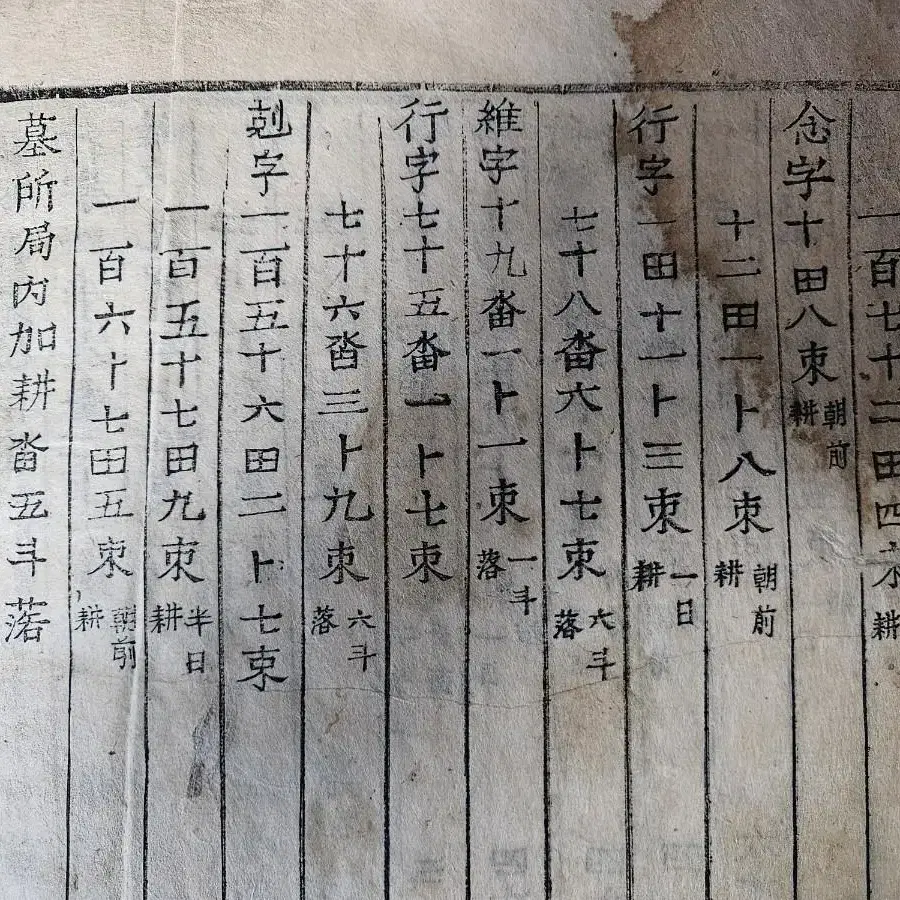 一百七十二田四束耕
念字十田八束朝前耕
十二田一卜八束朝前耕
行字一田十一卜三束一日耕
七十八畓六卜七束六斗落
維字十九畓一卜一束一斗落
行字七十五畓一卜七束
七十六畓三卜九束六斗落
剋字一百五十六田二卜七束
一百五十七田九束半日耕
一百六十七田五束朝前耕
墓所局内加耕畓五斗落